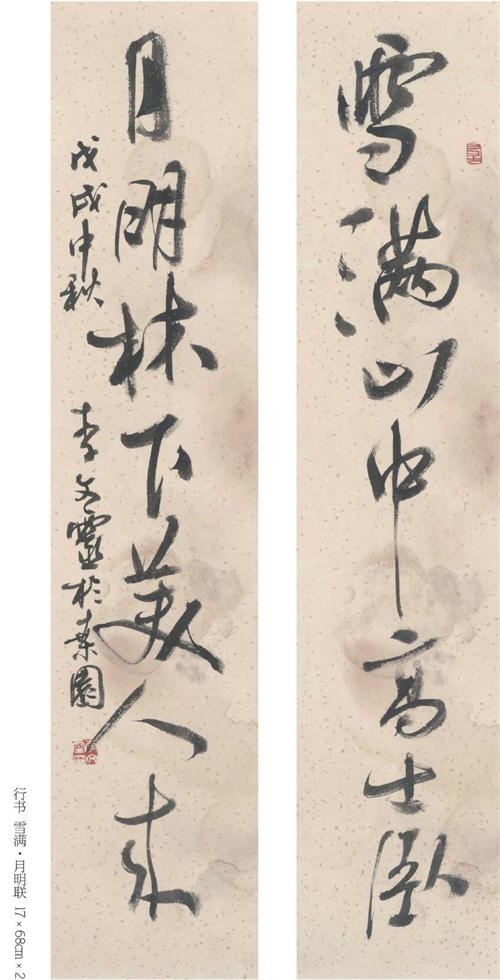 雪满山中高士卧
月明林下美人来
戊戌中秋 李文靈於園
行书 雪满·月明联 17×68cm×2